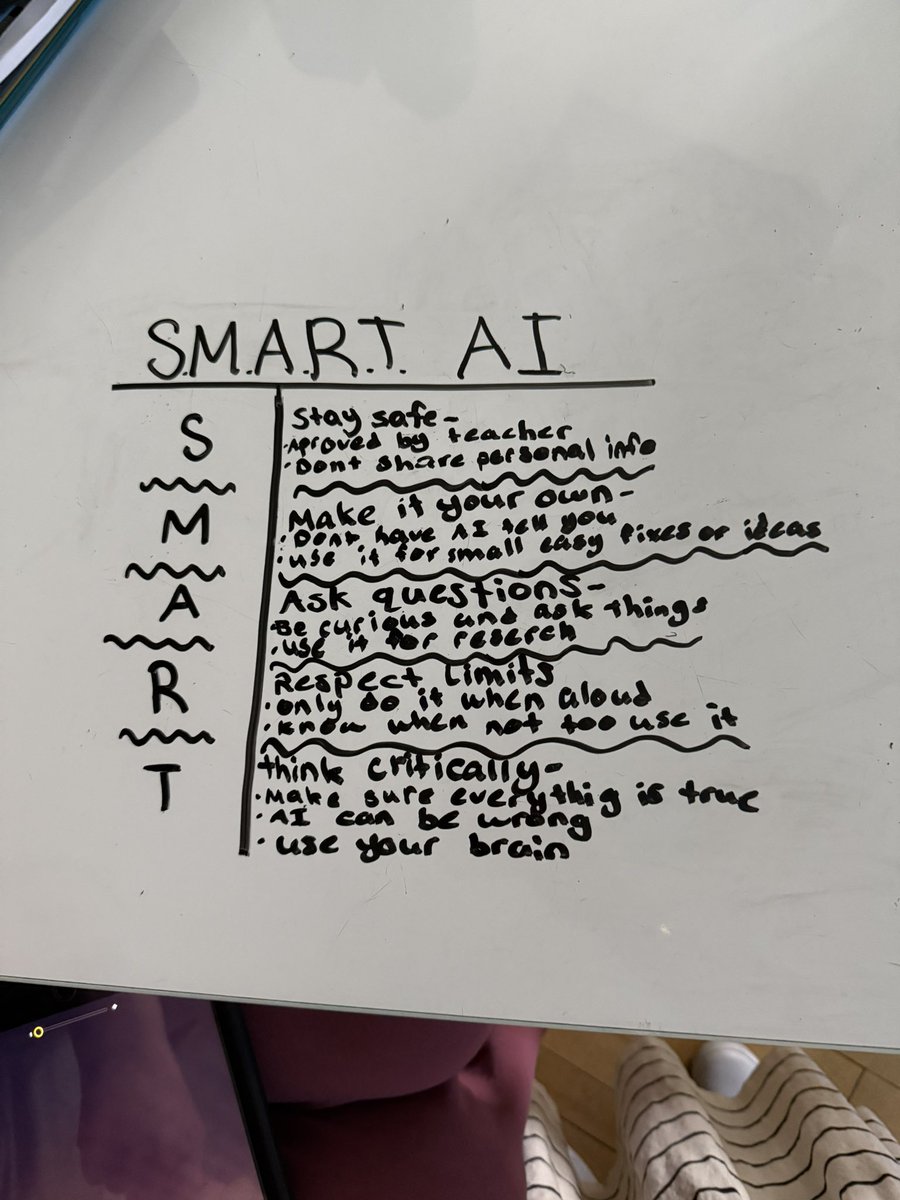 S.M.A.R.T. AI
S
Stay safe-
·Aproved by teacher
·Dont share personal info
M
Make it your own-
·Dont have AI tell you
·use it for small easy fixes or ideas
A
Ask questions-
·Be curious and ask things
·use it for reserch
R
Respect limits
·only do it when aloud
·know when not too use it
T
think critically-
·Make sure everythig is true
·AI can be wrong
·use your brain